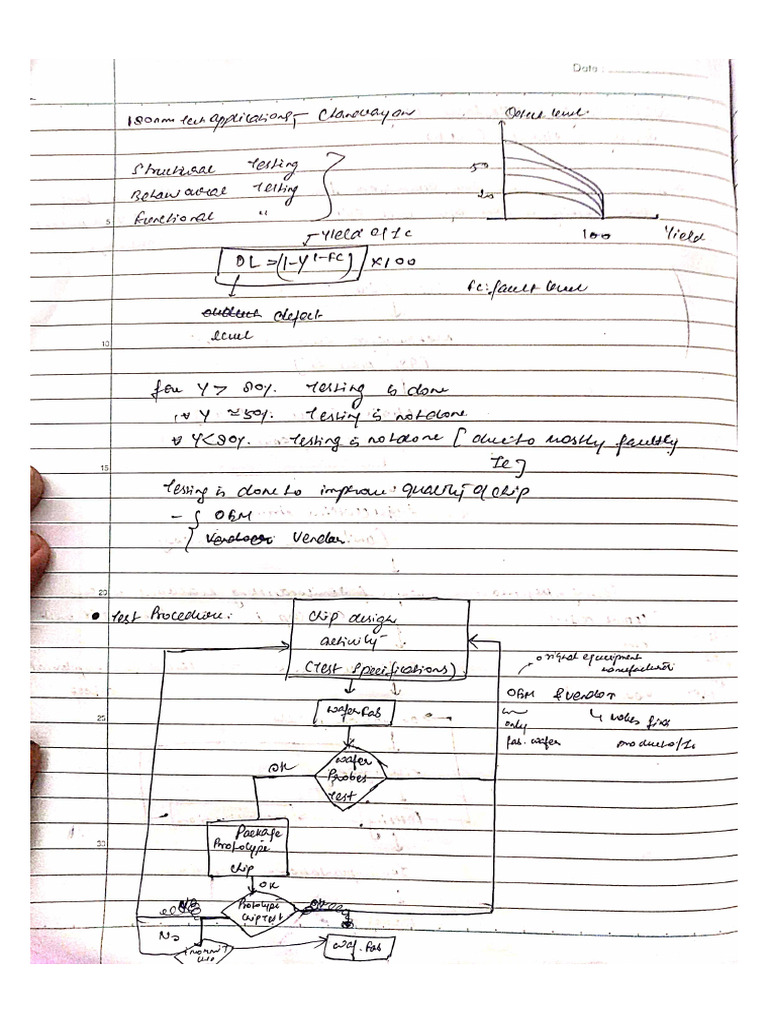 Date :
180nm tech applications - Chandrayan
Defect level
Structural Testing
Behavioural Testing
Functional "
50
20
100
Yield
5
Yield of Ic
DL = (1-Y^(1-FC)) × 100
FC: fault level
defect
level
10
for Y > 80%. Testing is done
Y ≈ 50%. Testing is not done
Y < 20%. Testing is not done [due to mostly faultly
Ic]
15
Testing is done to improve quality of chip
- { OEM
Vendor
20
• Test Procedure:
Chip design
activity
(Test Specifications)
original equipment
manufacturer
OEM & vendor
only
fab. wafer
makes final
product/Ic
25
wafer fab
wafer
Probes
Test
OK
Package
Prototype
chip
30
OK
Prototype
chip test
No
waf. fab